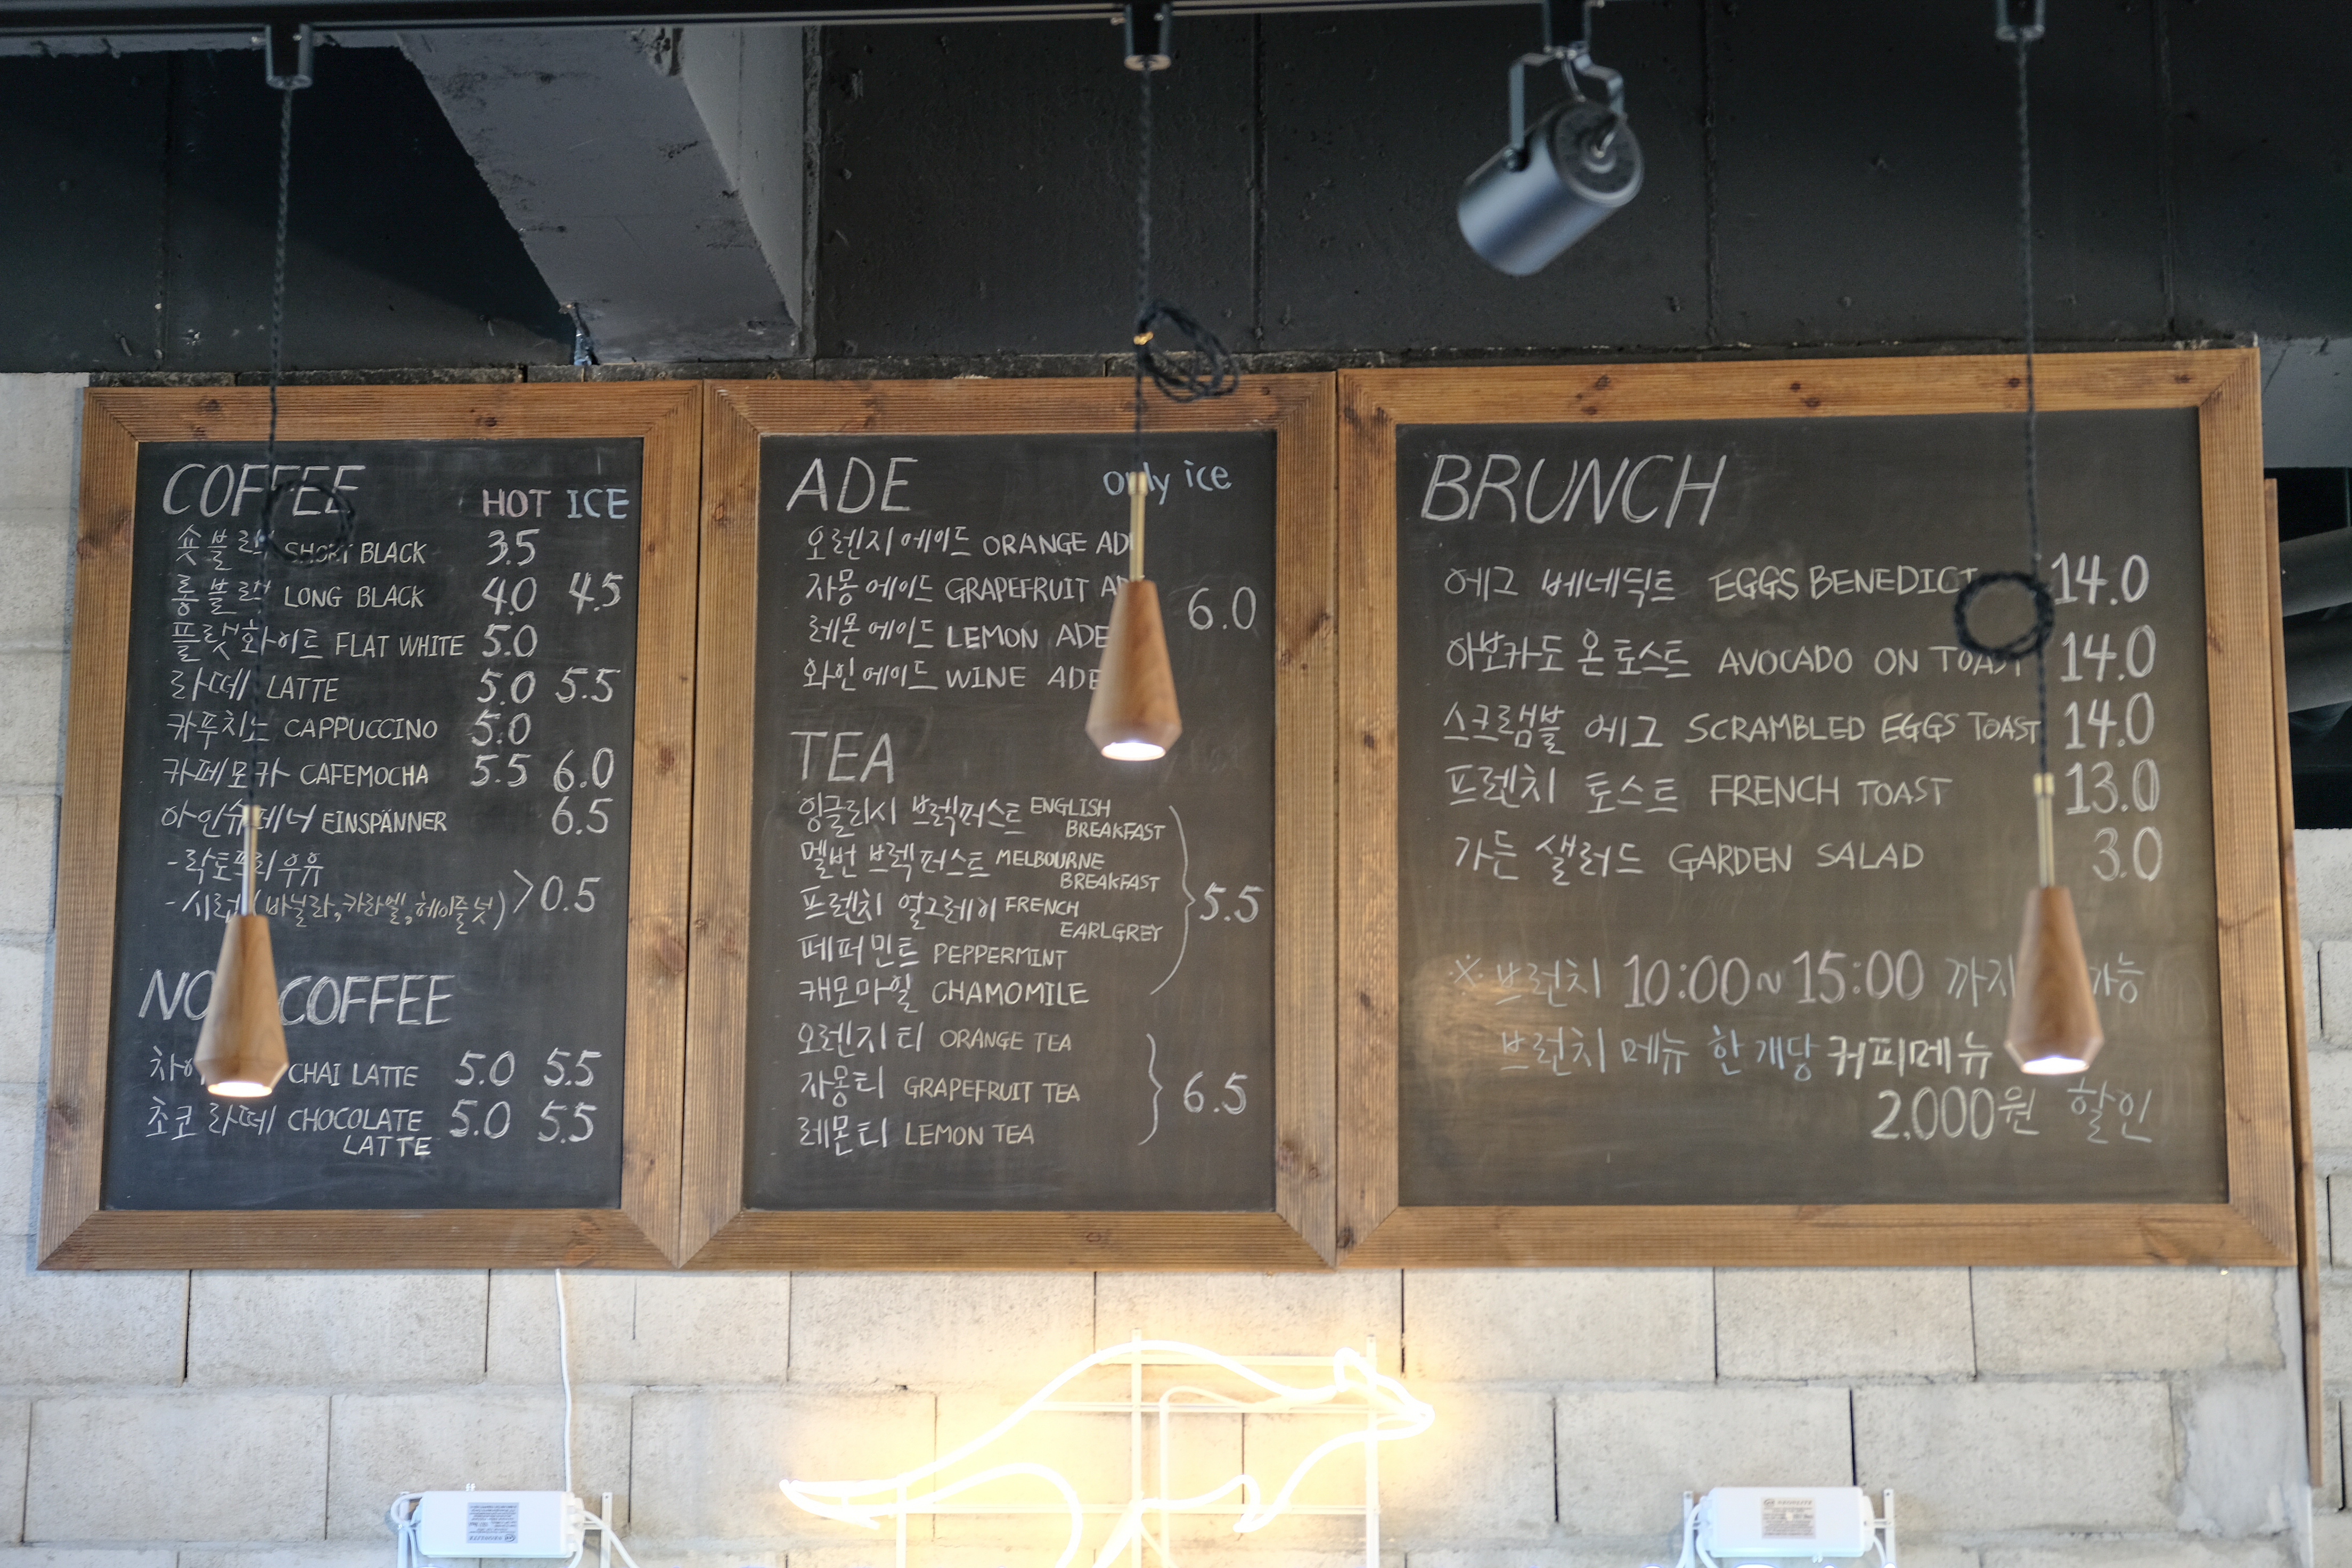 COFFEE HOT ICE
숏블랙 SHORT BLACK 3.5
롱블랙 LONG BLACK 4.0 4.5
플랫화이트 FLAT WHITE 5.0
라떼 LATTE 5.0 5.5
카푸치노 CAPPUCCINO 5.0
카페모카 CAFEMOCHA 5.5 6.0
아인슈페너 EINSPÄNNER 6.5
-락토프리우유
-시럽(바닐라,카라멜,헤이즐넛) >0.5
COFFEE
CHAI LATTE 5.0 5.5
초코 라떼 CHOCOLATE 5.0 5.5
LATTE
ADE only ice
오렌지에이드 ORANGE AD
자몽에이드 GRAPEFRUIT A
6.0
레몬에이드 LEMON ADE
와인에이드 WINE ADE
TEA
잉글리시 브렉퍼스트 ENGLISH
BREAKFAST
멜번 브렉퍼스트 MELBOURNE
BREAKFAST
프렌치 얼그레이 FRENCH 5.5
EARLGREY
페퍼민트 PEPPERMINT
캐모마일 CHAMOMILE
오렌지티 ORANGE TEA
자몽티 GRAPEFRUIT TEA 6.5
레몬티 LEMON TEA
BRUNCH
에그 베네딕트 EGGS BENEDICT 14.0
아보카도 온 토스트 AVOCADO ON TOAST 14.0
스크램블 에그 SCRAMBLED EGGS TOAST 14.0
프렌치 토스트 FRENCH TOAST 13.0
가든 샐러드 GARDEN SALAD 3.0
※ 브런치 10:00~15:00 까지 가능
브런치 메뉴 한개당 커피메뉴
2.000원 할인